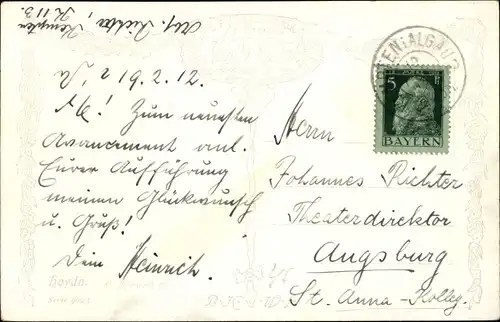 Abs. Richter,
Kempten
K 113.
19.2.12.
M.! Zum neuesten
Avancement anl.
Eurer Aufführung
meinen Glückwunsch
u. Gruß!
Dein Heinrich.
Haydn.
5
BAYERN
Herrn
Johannes Richter
Theaterdirektor
Augsburg
St. Anna-Kolleg.